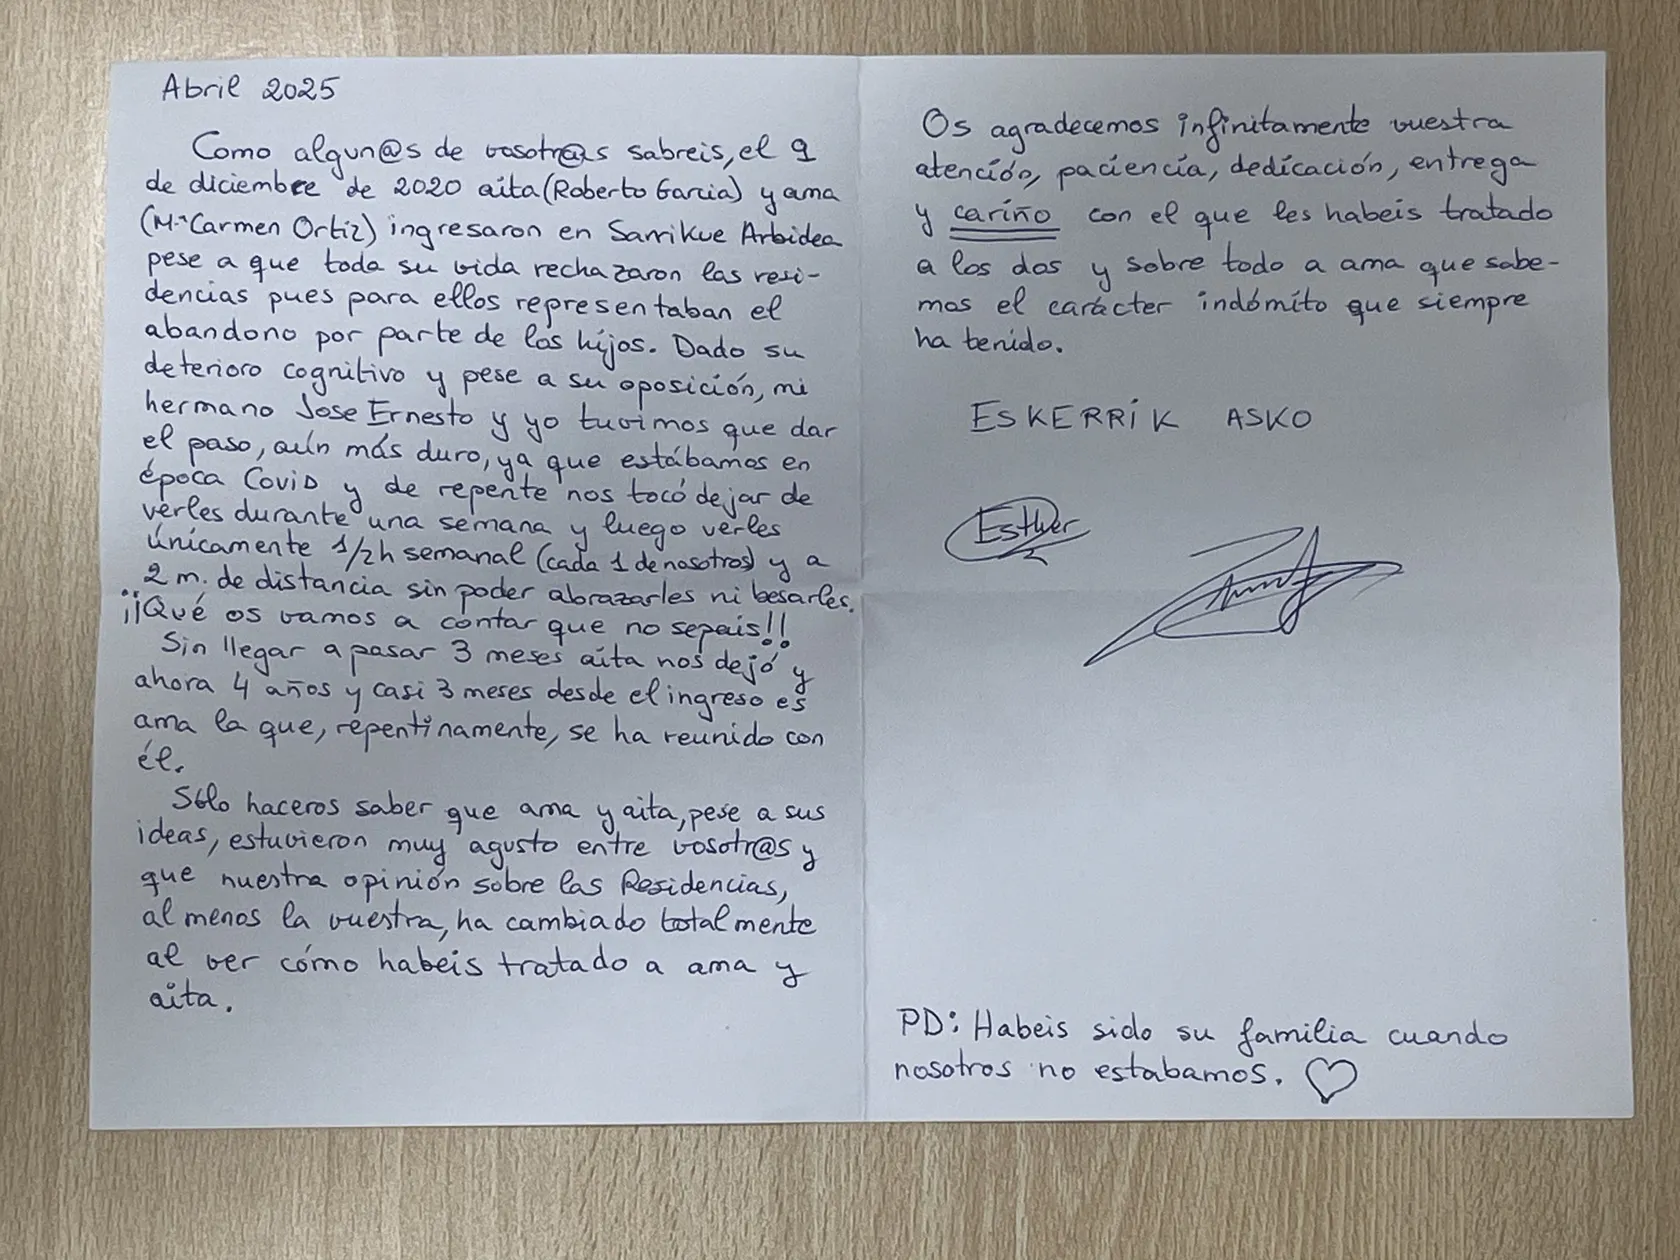 Abril 2025
Como algun@s de vosotr@s sabreis, el 9
de diciembre de 2020 aita (Roberto Garcia) y ama
(Mª Carmen Ortiz) ingresaron en Sarrikue Arbidea
pese a que toda su vida rechazaron las resi-
dencias pues para ellos representaban el
abandono por parte de los hijos. Dado su
deterioro cognitivo y pese a su oposición, mi
hermano Jose Ernesto y yo tuvimos que dar
el paso, aún más duro, ya que estábamos en
época Covid y de repente nos tocó dejar de
verles durante una semana y luego verles
únicamente 1/2h semanal (cada 1 de nosotros) y a
2 m. de distancia sin poder abrazarles ni besarles.
¡¡Qué os vamos a contar que no sepais!!
Sin llegar a pasar 3 meses aita nos dejó y
ahora 4 años y casi 3 meses desde el ingreso es
ama la que, repentinamente, se ha reunido con
él.
Sólo haceros saber que ama y aita, pese a sus
ideas, estuvieron muy agusto entre vosotr@s y
que nuestra opinión sobre las Residencias,
al menos la vuestra, ha cambiado totalmente
al ver cómo habeis tratado a ama y
aita.
Os agradecemos infinitamente vuestra
atención, paciencia, dedicación, entrega
y cariño con el que les habeis tratado
a los dos y sobre todo a ama que sabe-
mos el carácter indómito que siempre
ha tenido.
ESKERRIK ASKO
Esther
PD: Habeis sido su familia cuando
nosotros no estabamos. ♡